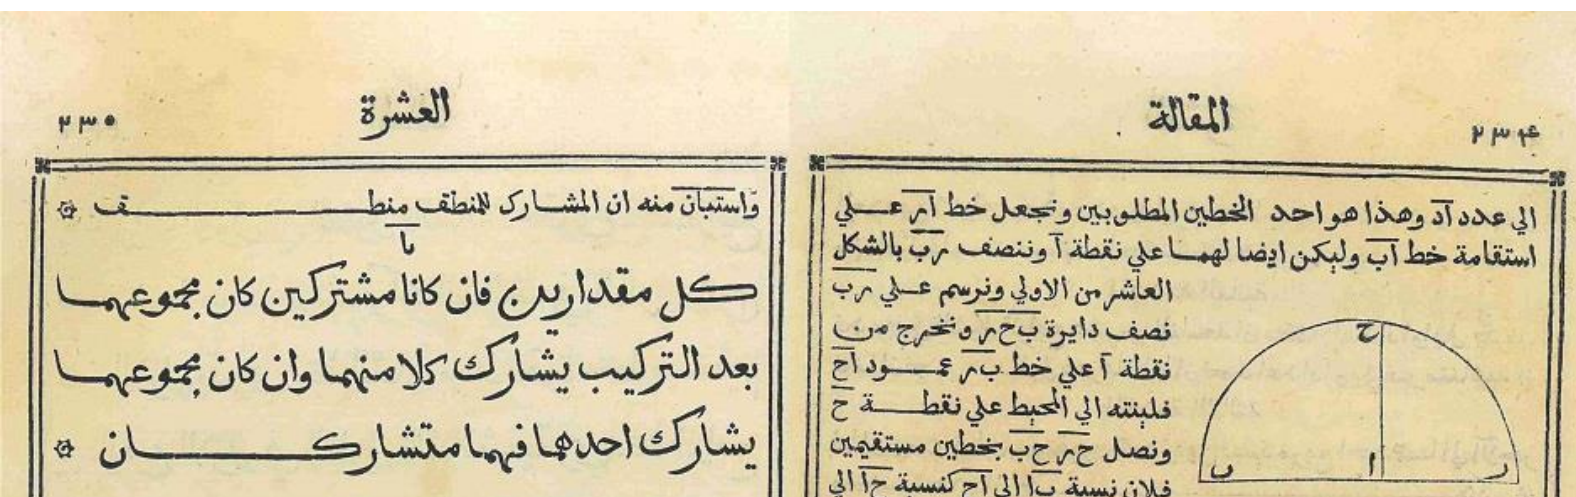 المقالة
٢٣٤
الي عدد آد وهذا هو احد الخطين المطلوبين ونجعل خط آر علي
استقامة خط آب وليكن ايضا لهما علي نقطة آ وننصف رب بالشكل
العاشر من الاولي ونرسم علي رب
نصف دايرة ب ح ر ونخرج من
نقطة آ علي خط ب ر عمود آح
فلينته الي المحيط علي نقطة ح
ونصل ح ر ح ب بخطين مستقيمين
فلان نسبة ب ا الي آح كنسبة ح آ الي
ح
ب ا ر
العشرة
٢٣٥
واستبان منه ان المشارك للمنطق منطق
يا
كل مقدارين فان كانا مشتركين كان مجموعهما
بعد التركيب يشارك كلا منهما وان كان مجموعهما
يشارك احدهما فهما متشاركان